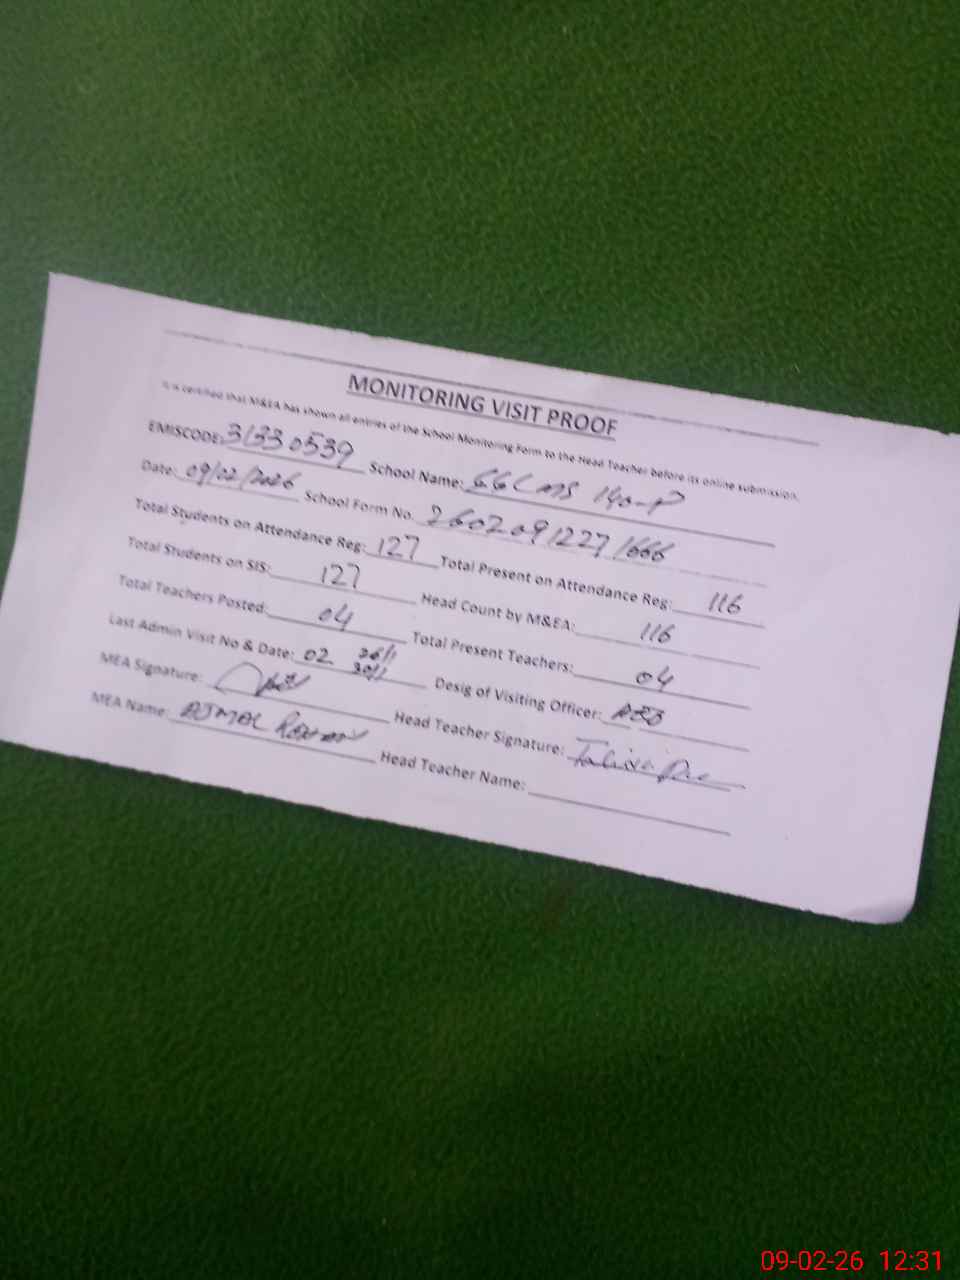 MONITORING VISIT PROOF
It is certified that M&EA has shown all entries of the School Monitoring Form to the Head Teacher before its online submission.
EMISCODE: 31330539 School Name: GGCMS 140-P
Date: 09/02/2026 School Form No. 26020912271666
Total Students on Attendance Reg: 127 Total Present on Attendance Reg: 116
Total Students on SIS: 127 Head Count by M&EA: 116
Total Teachers Posted: 04 Total Present Teachers: 04
Last Admin Visit No & Date: 02 26/1 30/1 Desig of Visiting Officer:
MEA Signature: Head Teacher Signature:
MEA Name: AJMAL Head Teacher Name:
09-02-26 12:31